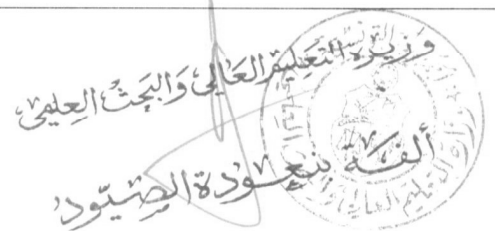 وزيرة التعليم العالي والبحث العلمي
ألفة بنعودة الصيود